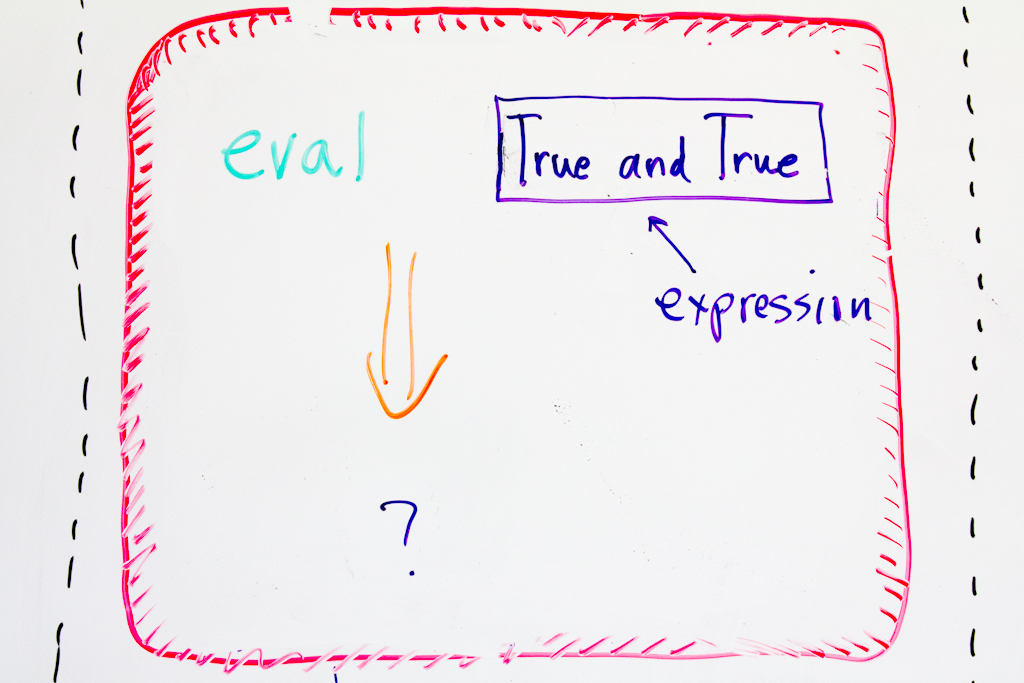 eval
True and True
expression
?